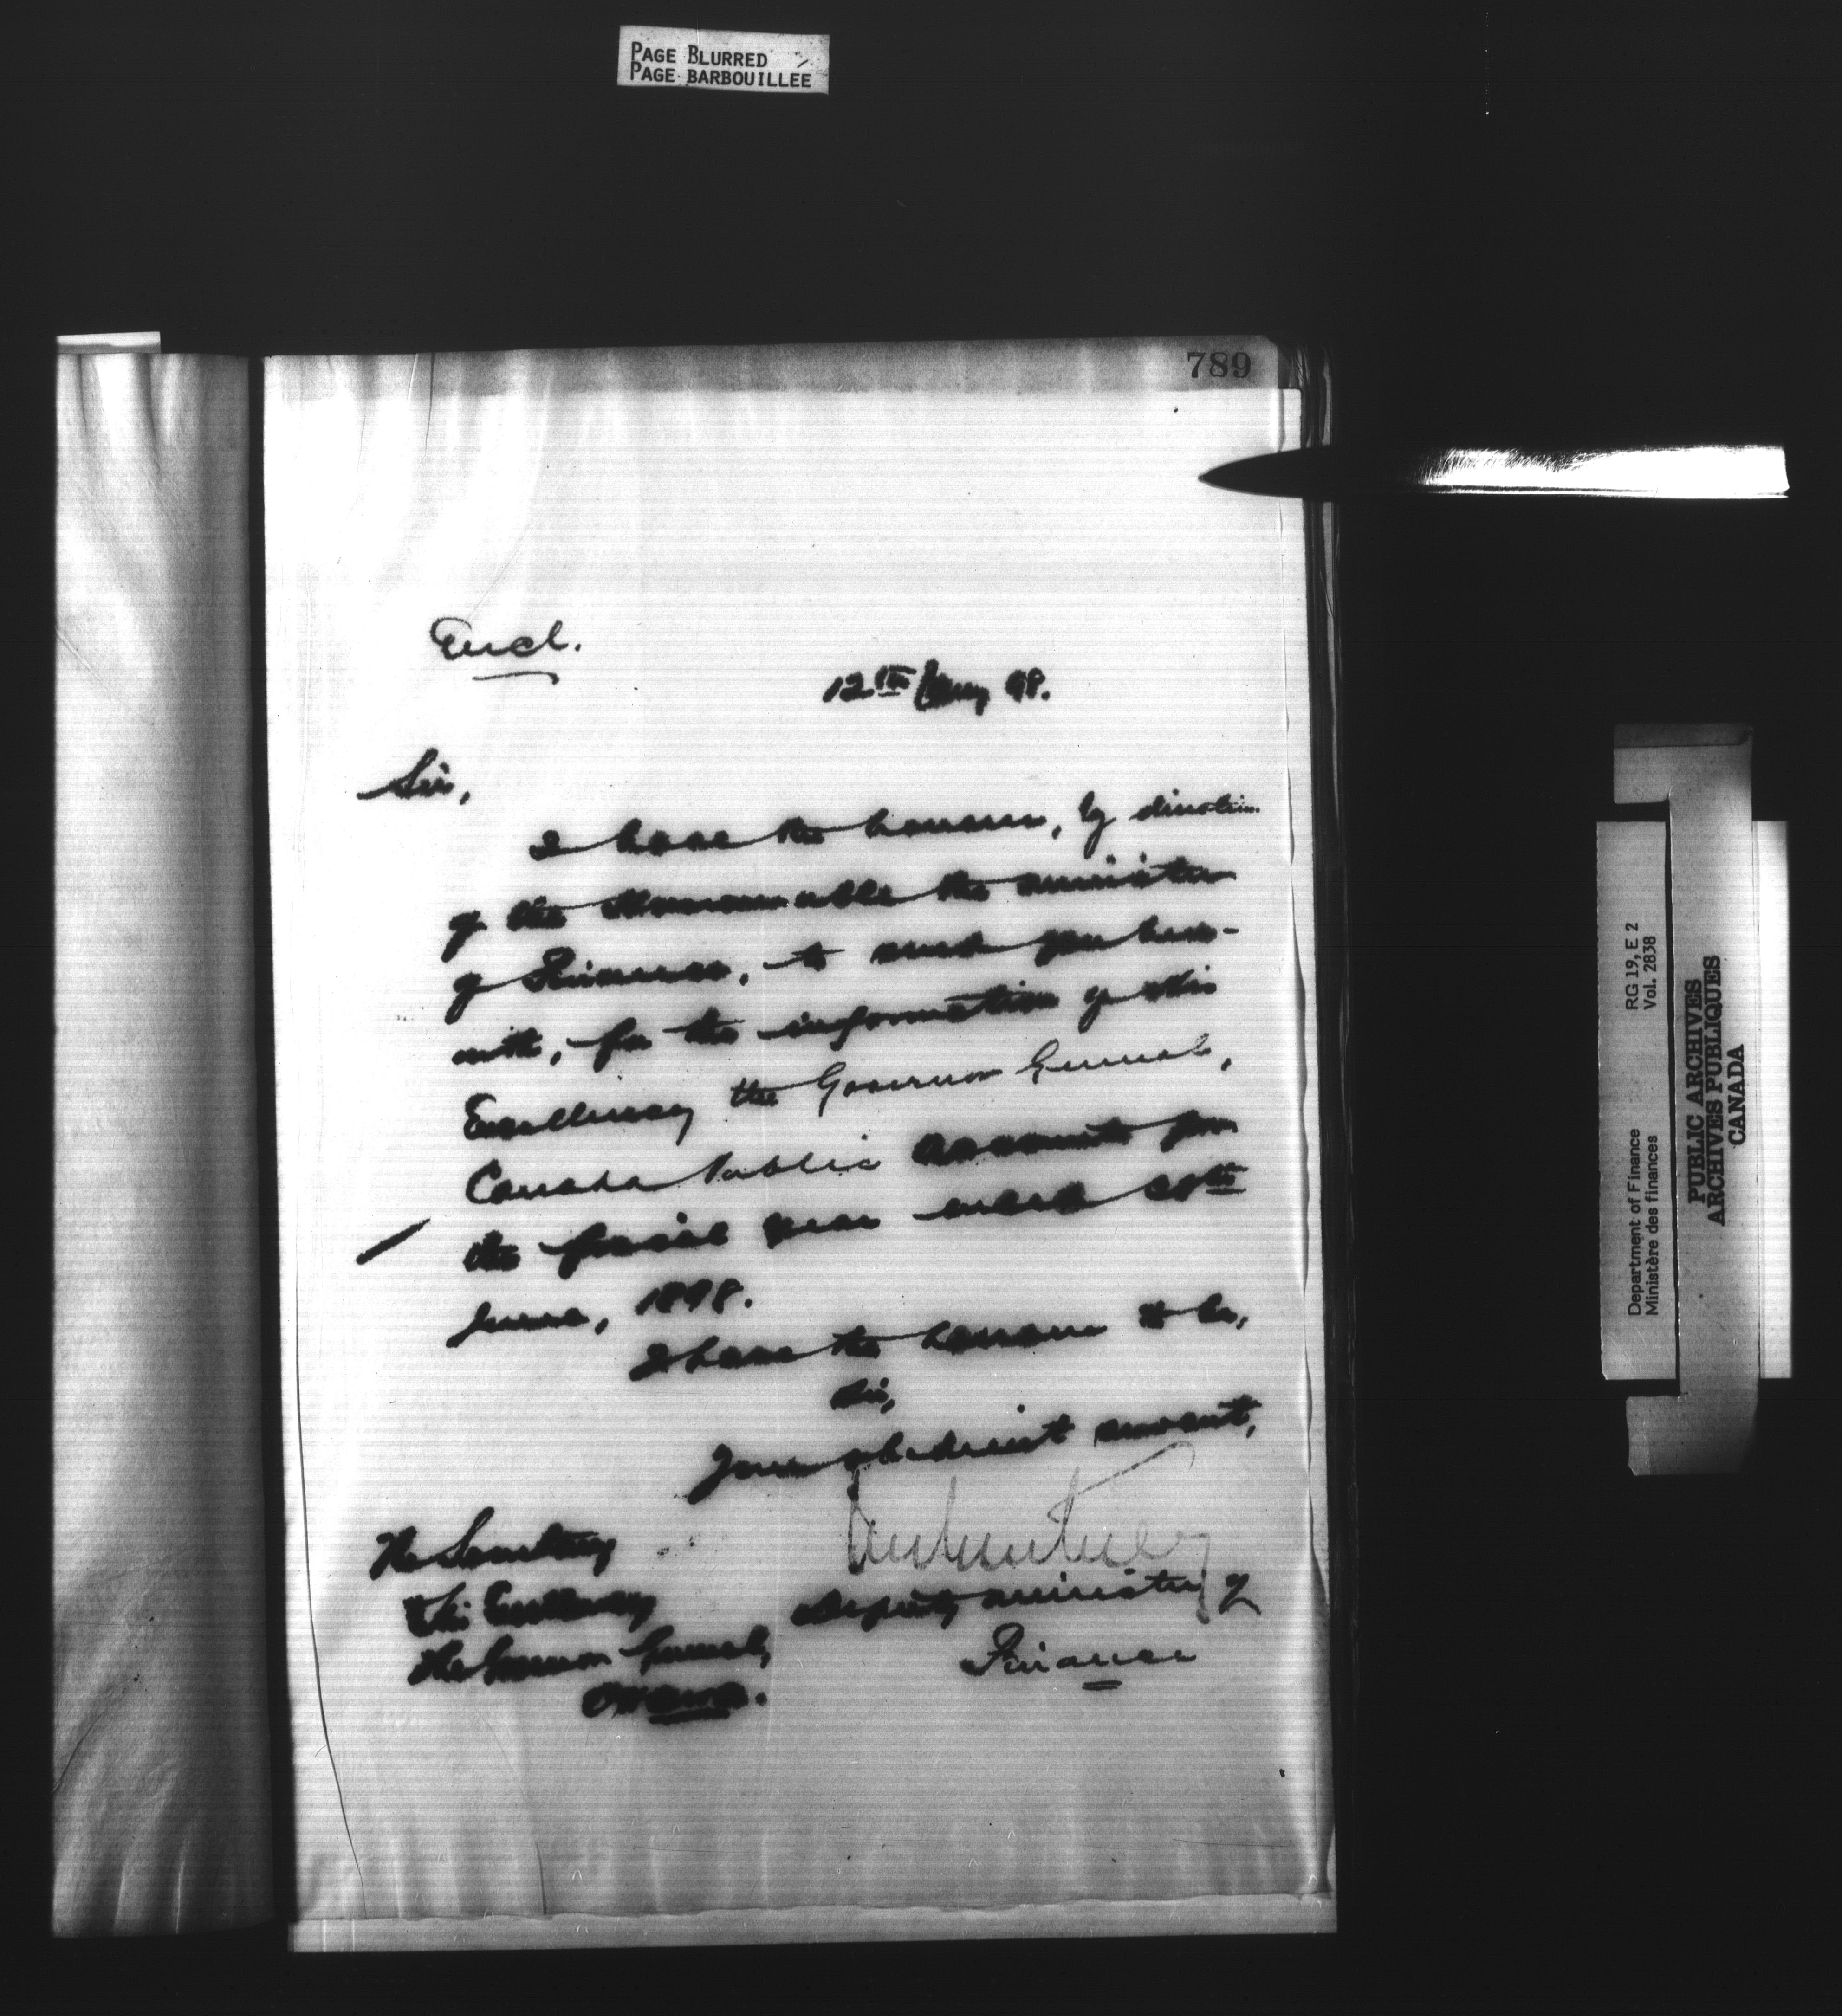 PAGE BLURRED
PAGE BARBOUILLEE
789
Encl.
12th Jany 98.
Sir,
I have the honour, by direction
of the Honourable the Minister
of Finance, to send you here-
with, for the information of His
Excellency the Governor General,
Canada Public Accounts for
the fiscal year ended 30th
June, 1898.
I have the honour to be,
Sir,
Your obedient servant,
Deputy Minister of
Finance
The Secretary
His Excellency
The Governor General,
Ottawa.
RG 19, E 2
Vol. 2838
Department of Finance
Ministère des finances
PUBLIC ARCHIVES
ARCHIVES PUBLIQUES
CANADA